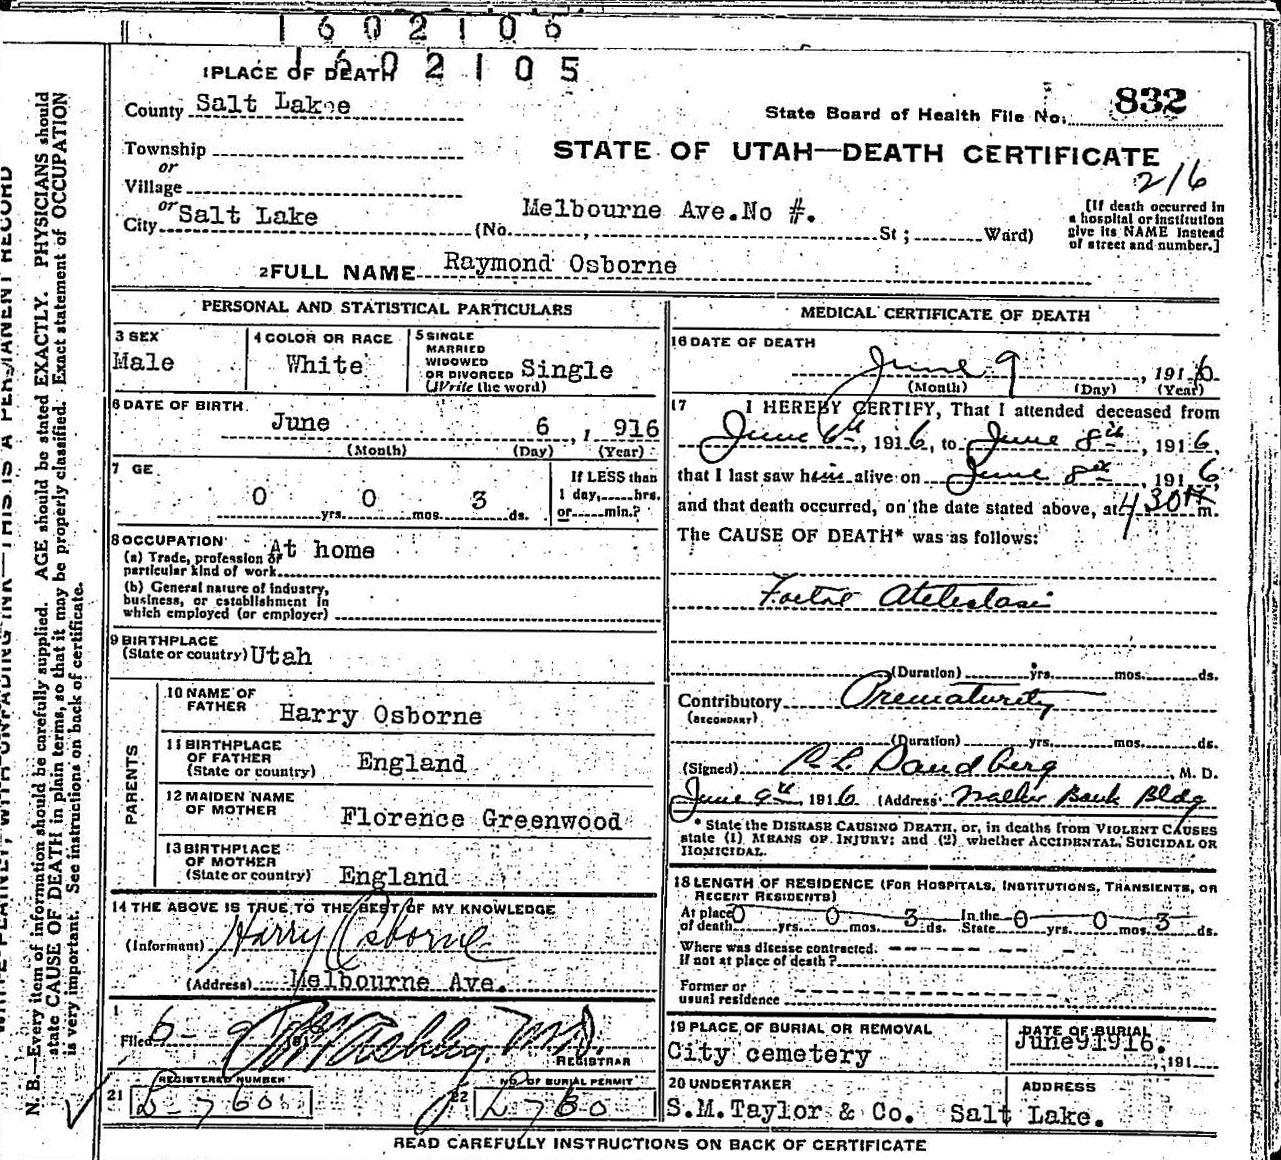 1602106
1602105
1 PLACE OF DEATH
County Salt Lake
State Board of Health File No. 832
Township
STATE OF UTAH—DEATH CERTIFICATE
or
Village
216
or
City Salt Lake (No. Melbourne Ave. No #. St ; Ward)
[If death occurred in
a hospital or institution
give its NAME instead
of street and number.]
2 FULL NAME Raymond Osborne
PERSONAL AND STATISTICAL PARTICULARS
3 SEX
Male
4 COLOR OR RACE
White
5 SINGLE
MARRIED
WIDOWED
OR DIVORCED Single
(Write the word)
6 DATE OF BIRTH
June 6, 1916
(Month) (Day) (Year)
7 GE
0 yrs. 0 mos. 3 ds.
If LESS than
1 day, hrs.
or min.?
8 OCCUPATION At home
(a) Trade, profession or
particular kind of work
(b) General nature of industry,
business, or establishment in
which employed (or employer)
9 BIRTHPLACE
(State or country) Utah
PARENTS
10 NAME OF
FATHER Harry Osborne
11 BIRTHPLACE
OF FATHER
(State or country) England
12 MAIDEN NAME
OF MOTHER Florence Greenwood
13 BIRTHPLACE
OF MOTHER
(State or country) England
14 THE ABOVE IS TRUE TO THE BEST OF MY KNOWLEDGE
(Informant) Harry Osborne
(Address) Melbourne Ave.
Filed 6-9 191 M.D.
REGISTRAR
REGISTERED NUMBER
21 L-760
NO. OF BURIAL PERMIT
22 L760
MEDICAL CERTIFICATE OF DEATH
16 DATE OF DEATH
June 9, 1916
(Month) (Day) (Year)
17 I HEREBY CERTIFY, That I attended deceased from
June 6th, 1916, to June 8th, 1916,
that I last saw him alive on June 8th, 1916,
and that death occurred, on the date stated above, at 4 30 A m.
The CAUSE OF DEATH* was as follows:
Foetal Atelectasis
(Duration) yrs. mos. ds.
Contributory Prematurity
(SECONDARY)
(Duration) yrs. mos. ds.
(Signed) Sandberg, M. D.
June 9th 1916 (Address) Walker Bank Bldg
* State the DISEASE CAUSING DEATH, or, in deaths from VIOLENT CAUSES
state (1) MEANS OF INJURY; and (2) whether ACCIDENTAL, SUICIDAL OR
HOMICIDAL.
18 LENGTH OF RESIDENCE (FOR HOSPITALS, INSTITUTIONS, TRANSIENTS, OR
RECENT RESIDENTS)
At place of death 0 yrs. 0 mos. 3 ds. In the State 0 yrs. 0 mos. 3 ds.
Where was disease contracted.
if not at place of death?
Former or
usual residence
19 PLACE OF BURIAL OR REMOVAL
City cemetery
DATE OF BURIAL
June 9 1916. 191
20 UNDERTAKER
S.M. Taylor & Co.
ADDRESS
Salt Lake.
READ CAREFULLY INSTRUCTIONS ON BACK OF CERTIFICATE
N. B.—Every item of information should be carefully supplied. AGE should be stated EXACTLY. PHYSICIANS should
state CAUSE OF DEATH in plain terms, so that it may be properly classified. Exact statement of OCCUPATION
is very important. See instructions on back of certificate.